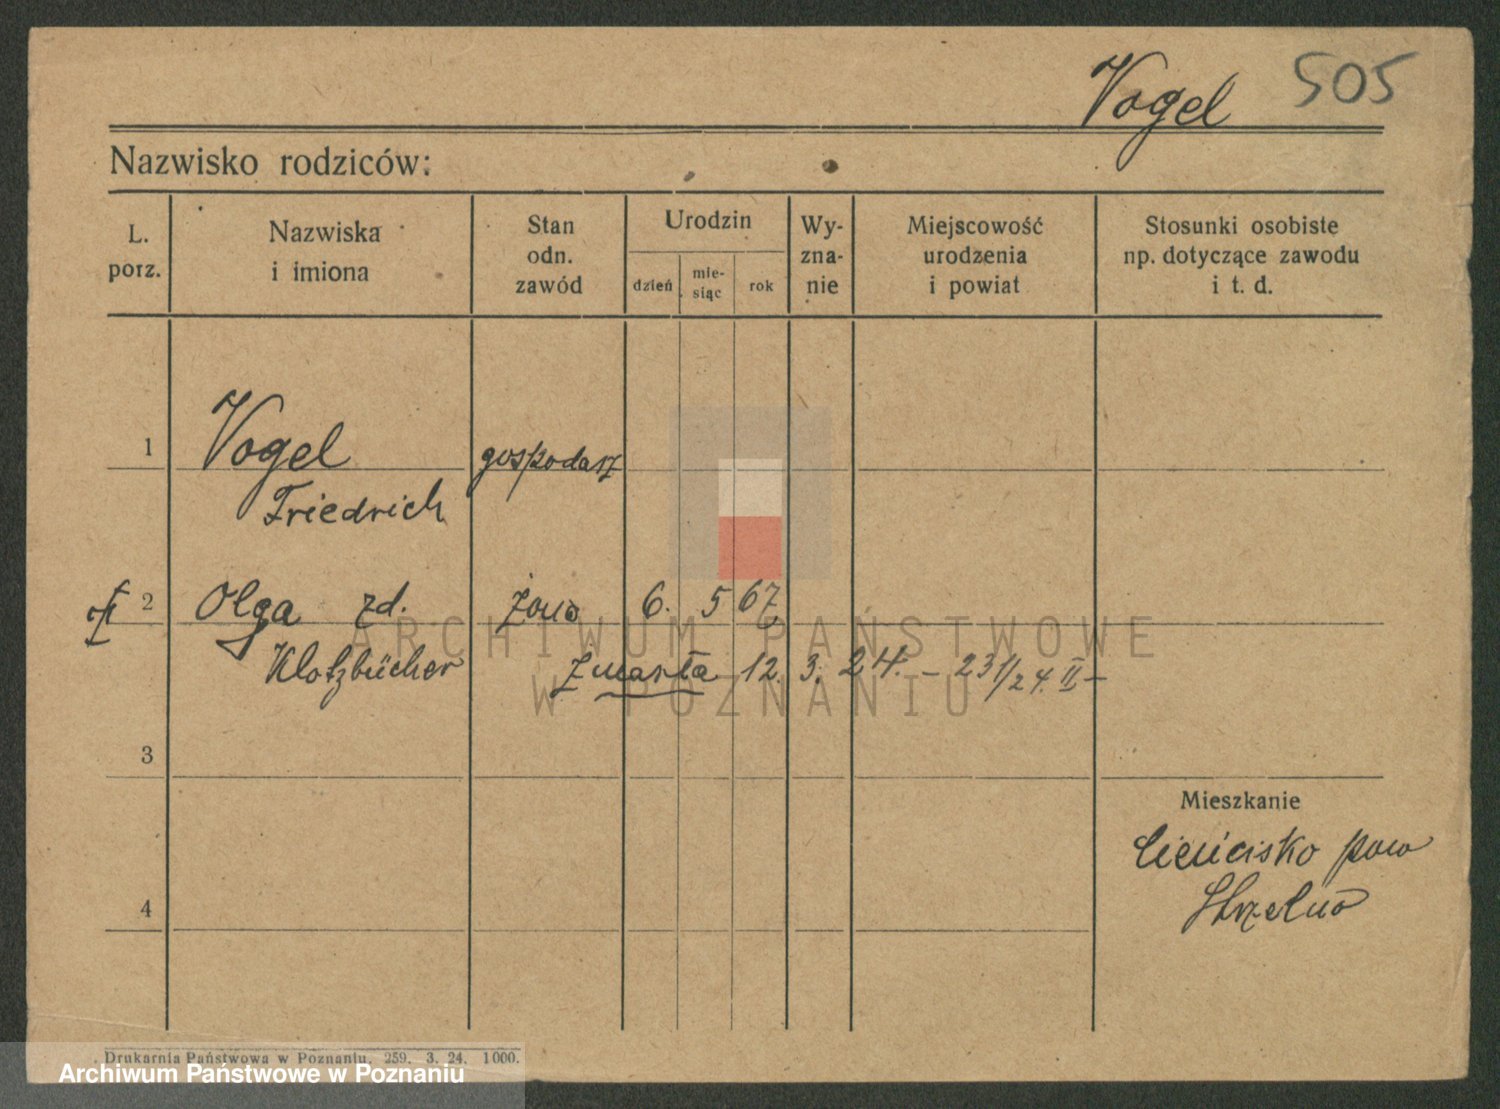 Vogel 505
Nazwisko rodziców:
L. porz.
Nazwiska i imiona
Stan odn. zawód
Urodzin
dzień
mie-siąc
rok
Wy-zna-nie
Miejscowość urodzenia i powiat
Stosunki osobiste np. dotyczące zawodu i t. d.
1 Vogel gospodarz
Friedrich
2 Olga zd. żona 6. 5 67
Klotzbücher Zmarła 12. 3. 24. – 231/24. II –
3
Mieszkanie
pow
Strzelno
4
Drukarnia Państwowa w Poznaniu. 259. 3. 24. 1000.
ARCHIWUM PAŃSTWOWE
W POZNANIU
Archiwum Państwowe w Poznaniu